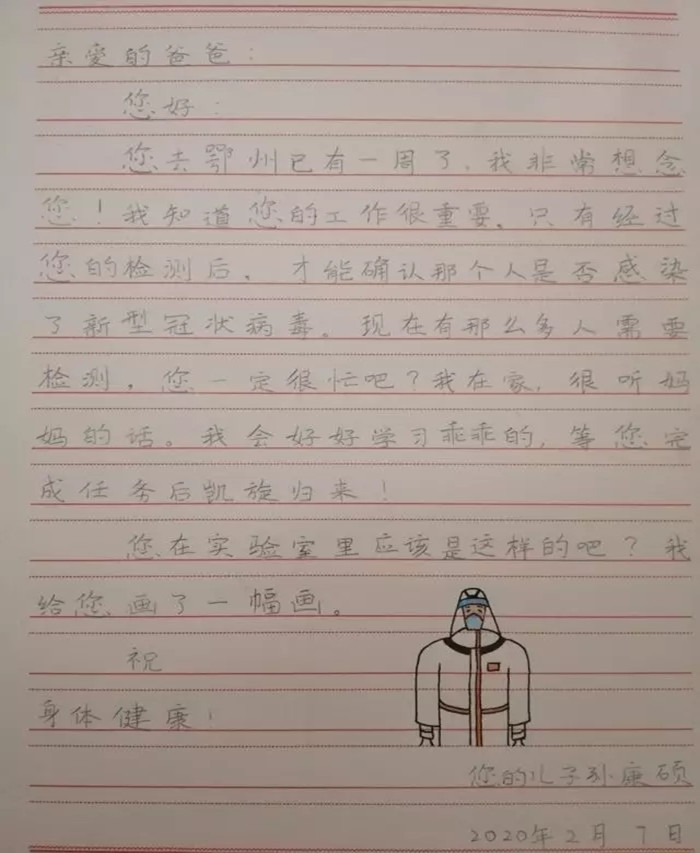 亲爱的爸爸：
您好：
您去鄂州已有一周了，我非常想念
您！我知道您的工作很重要。只有经过
您的检测后，才能确认那个人是否感染
了新型冠状病毒。现在有那么多人需要
检测，您一定很忙吧？我在家，很听妈
妈的话。我会好好学习乖乖的，等您完
成任务后凯旋归来！
您在实验室里应该是这样的吧？我
给您画了一幅画。
祝
身体健康！
您的儿子孙康硕
2020年2月7日